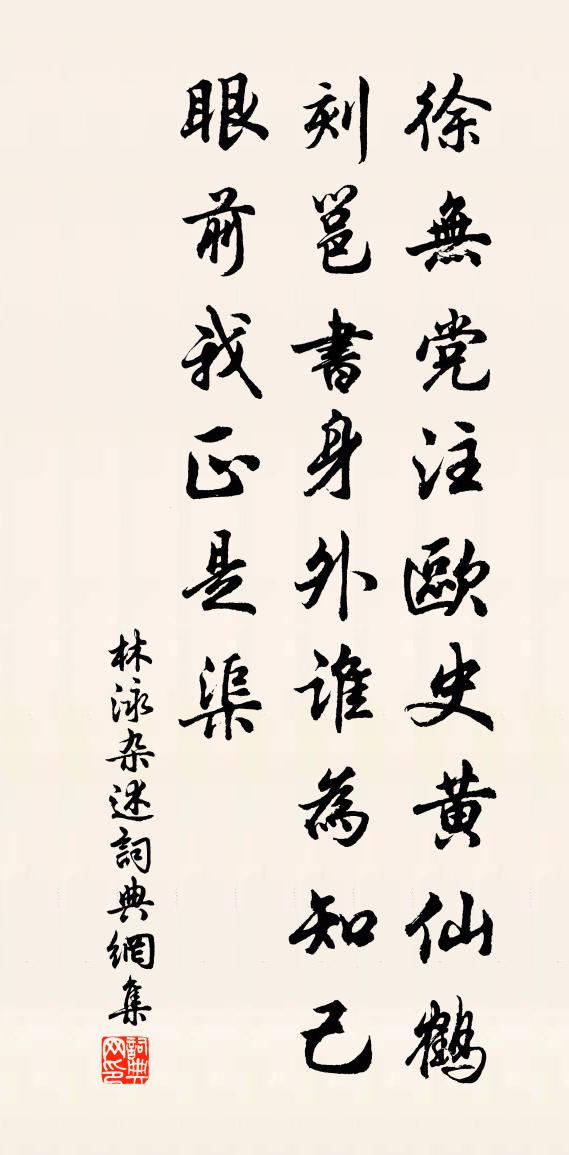 徐無党注歐史黄仙鶴
刻邕書身外谁為知己
眼前我正是渠
林泳杂述詞典網集
詞典网印